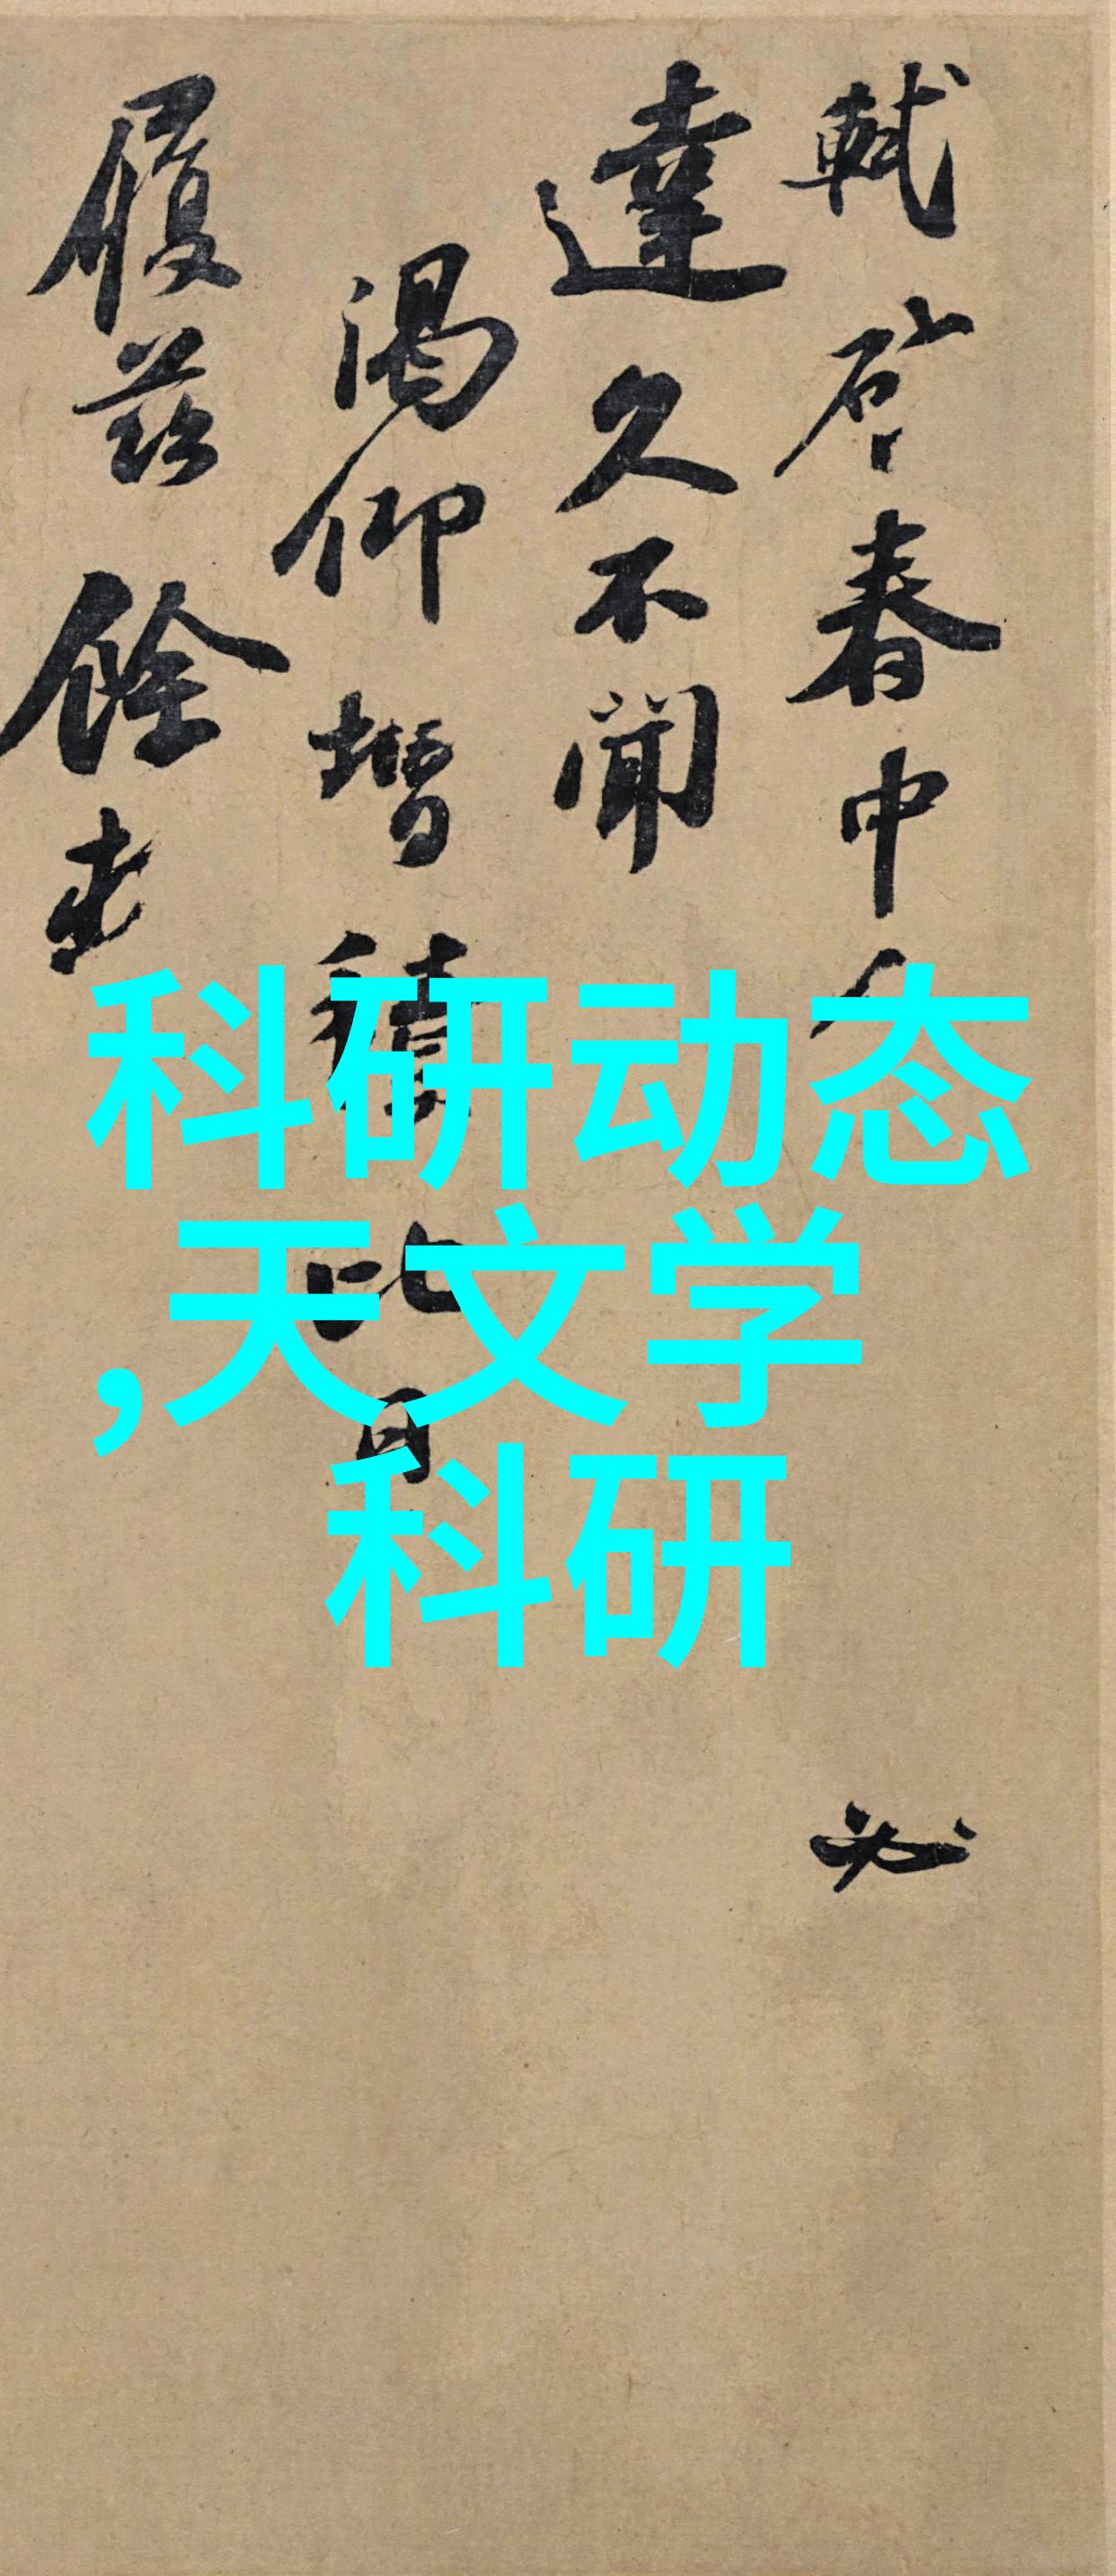 軾啓春中
必
達久不聞
渴仰增積比日
履茲餘
科研动态
,天文学
科研